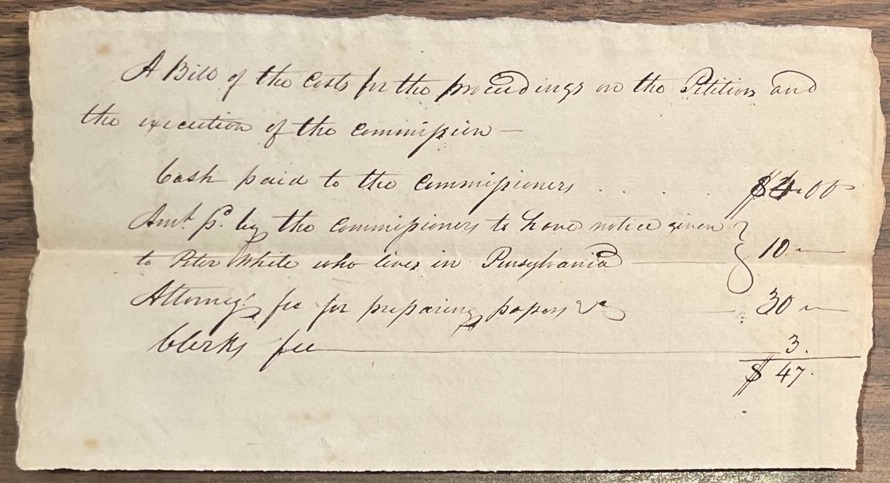 A Bill of the Costs for the proceedings on the Petition and
the execution of the commission —
Cash paid to the commissioners . . . . $4.00
Amt. pd. by the commissioners to have notice given
to Peter White who lives in Pensylvania — 10 —
Attorney's fee for preparing papers &c — 30 —
Clerks fee — 3.
$ 47.